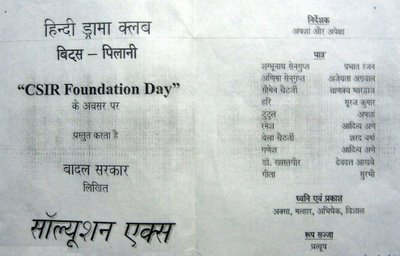 हिन्दी ड्रामा क्लब
बिट्स – पिलानी
“CSIR Foundation Day”
के अवसर पर
प्रस्तुत करता है
बादल सरकार
लिखित
सॉल्यूशन एक्स
निर्देशक
अफ्शां और अपेक्षा
पात्र
शम्भूनाथ सेनगुप्त प्रभात रंजन
अणिमा सेनगुप्त अजेयता अग्रवाल
सोमेन चैटर्जी चाणक्य भारद्वाज
हरि सूरज कुमार
टुटुल अफ्शां
रमेश आदित्य अणे
बेला चैटर्जी शरद वर्मा
गणेश आदित्य अणे
डॉ. खास्तगीर देवदत्त आरावे
गीता सुरभी
ध्वनि एवं प्रकाश
अक्सा, मल्हार, अभिषेक, विशाल
रूप सज्जा
प्रत्यूष